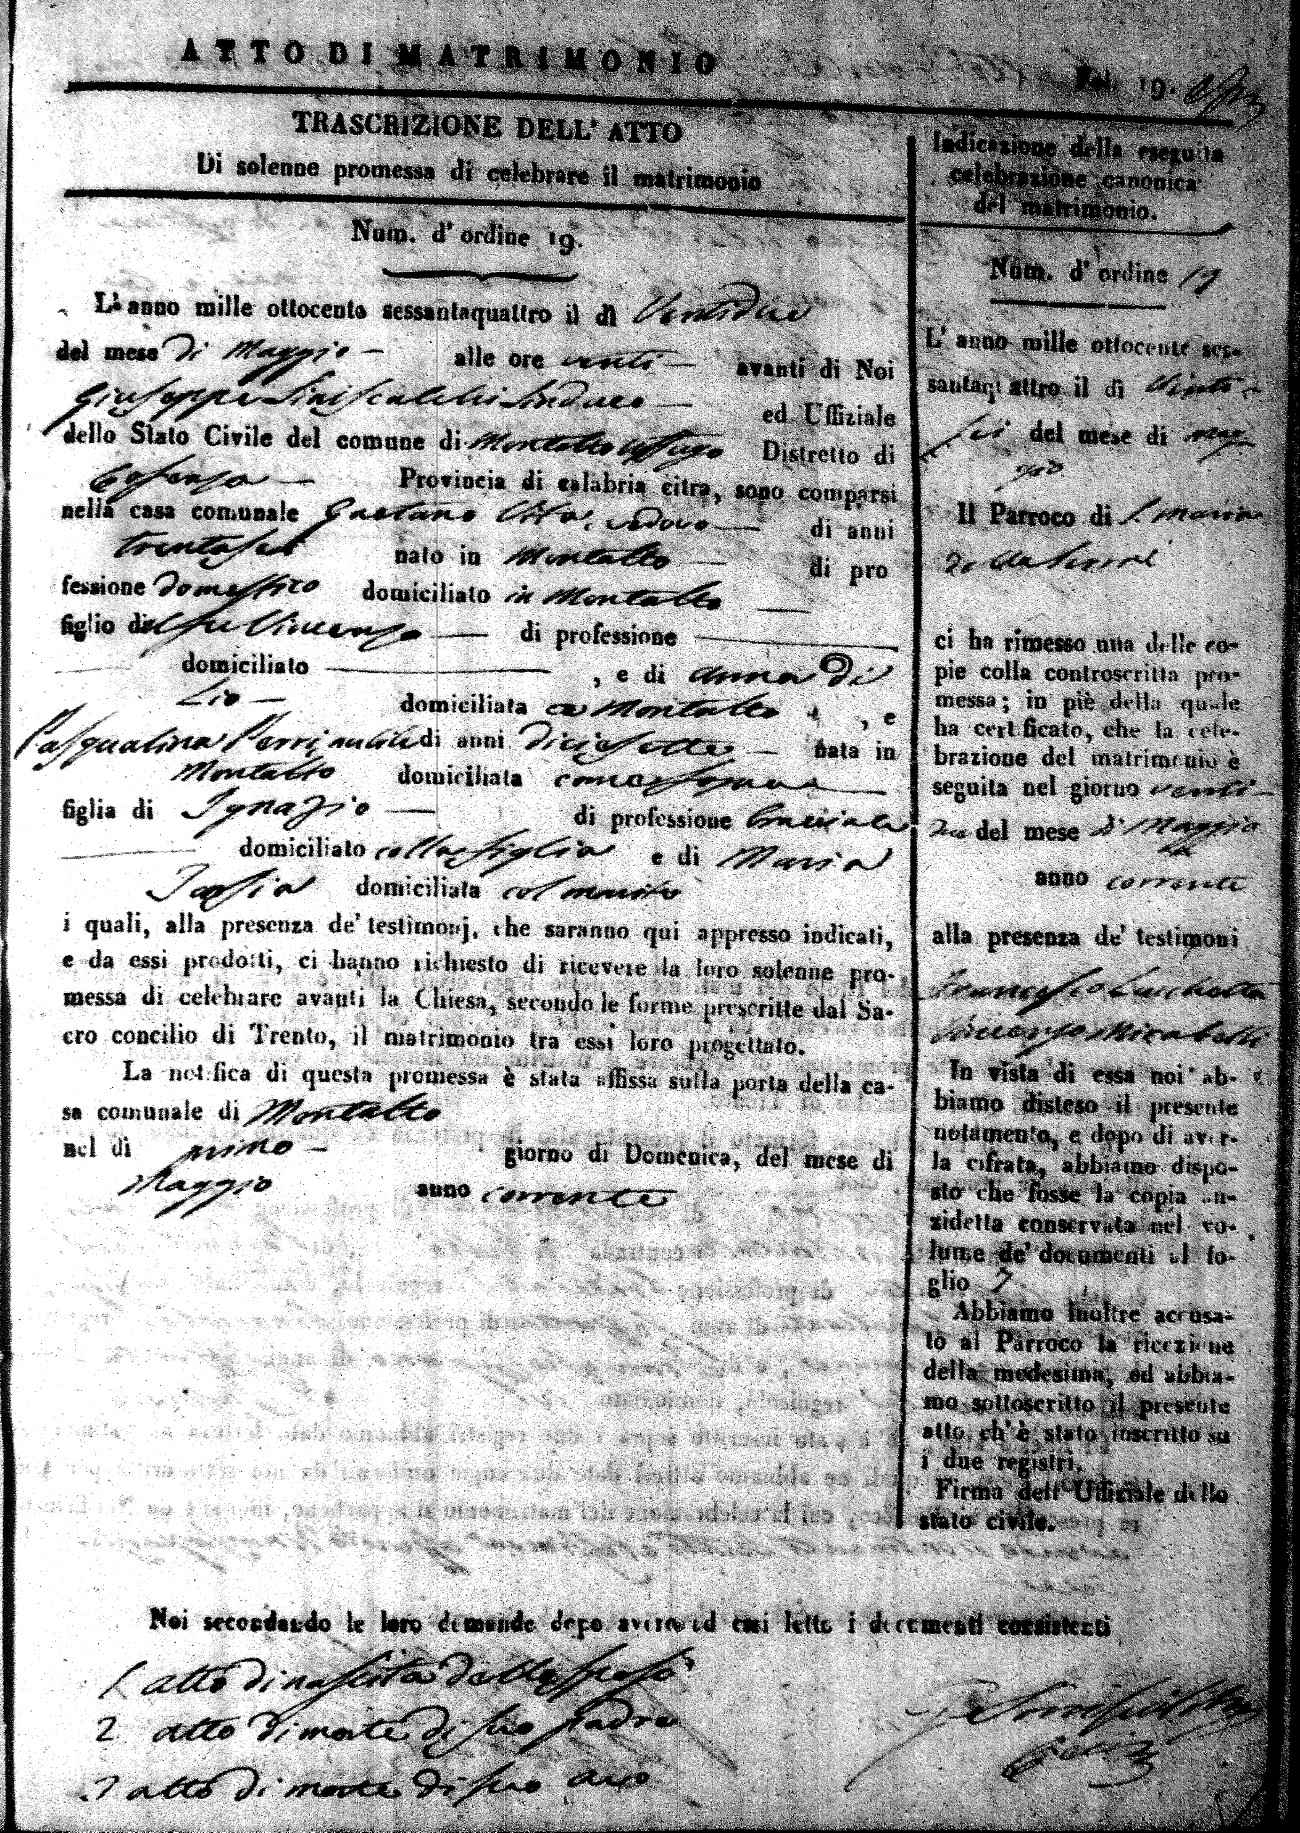 ATTO DI MATRIMONIO
Fol. 19.
TRASCRIZIONE DELL' ATTO
Di solenne promessa di celebrare il matrimonio
Num. d' ordine 19.
L' anno mille ottocento sessantaquattro il dì Ventidue
del mese di Maggio — alle ore venti — avanti di Noi
Giuseppe Siniscalchi Sindaco — ed Uffiziale
dello Stato Civile del comune di Montalto Uffugo Distretto di
Cosenza — Provincia di calabria citra, sono comparsi
nella casa comunale Gaetano vedovo — di anni
trentasei nato in Montalto — di pro
fessione domestico domiciliato in Montalto —
figlio del fu Vincenzo — di professione —
— domiciliato — , e di Anna Di
Lio — domiciliata in Montalto , e
Pasqualina Perri nubile di anni diciesette — nata in
Montalto domiciliata come sopra —
figlia di Ignazio — di professione bracciale
— domiciliato colla figlia e di Maria
domiciliata col marito
i quali, alla presenza de' testimonj, che saranno qui appresso indicati,
e da essi prodotti, ci hanno richiesto di ricevere la loro solenne pro-
messa di celebrare avanti la Chiesa, secondo le forme prescritte dal Sa-
cro concilio di Trento, il matrimonio tra essi loro progettato.
La notifica di questa promessa è stata affissa sulla porta della ca-
sa comunale di Montalto
nel dì primo — giorno di Domenica, del mese di
Maggio anno corrente
Noi secondando le loro domande dopo avere ad essi letto i documenti consistenti
1 atto di nascita dello sposo
2 atto di morte di suo padre
3 atto di morte di suo avo
Indicazione della eseguita
celebrazione canonica
del matrimonio.
Num. d' ordine 19
L' anno mille ottocento ses-
santaquattro il dì venti-
sei del mese di mag
gio
Il Parroco di S. Maria
ci ha rimesso una delle co-
pie colla controscritta pro-
messa; in piè della quale
ha certificato, che la cele-
brazione del matrimonio è
seguita nel giorno venti-
due del mese di Maggio
anno corrente
alla presenza de' testimoni
Francesco
Vincenzo Mirabelli
In vista di essa noi ab-
biamo disteso il presente
notamento, e dopo di aver-
la cifrata, abbiamo dispo-
sto che fosse la copia an-
zidetta conservata nel vo-
lume de' documenti al fo-
glio 7
Abbiamo inoltre accusa-
to al Parroco la ricezione
della medesima, ed abbia-
mo sottoscritto il presente
atto, ch' è stato inscritto su
i due registri.
Firma dell' Uffiziale dello
stato civile.